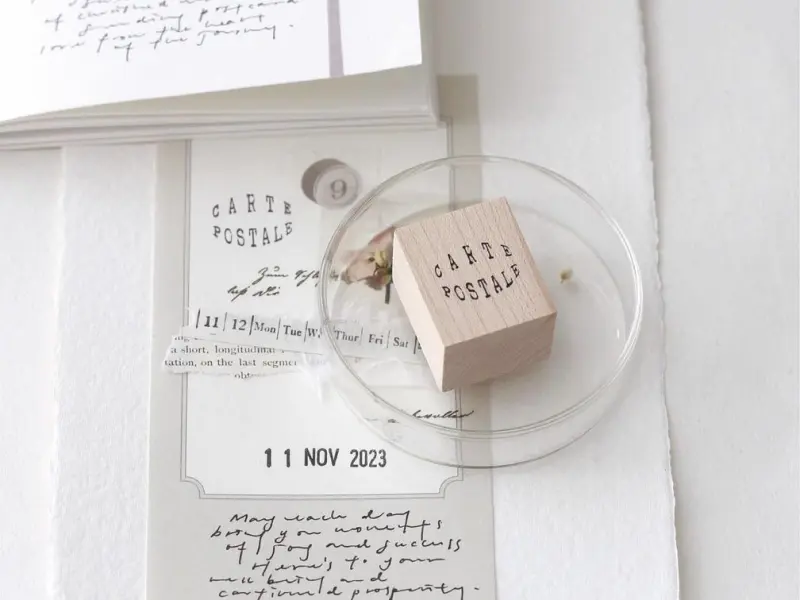 of continued
sending postcard
love from the heart
of the journey.
9
CARTE
POSTALE
CARTE
POSTALE
Zum
11 12 Mon Tue W. Thur Fri Sat
a short, longitudinal
tation, on the last segmen
obt
11 NOV 2023
May each day
bring you moments
of joy and success
Here's to your
well being and
continued prosperity.